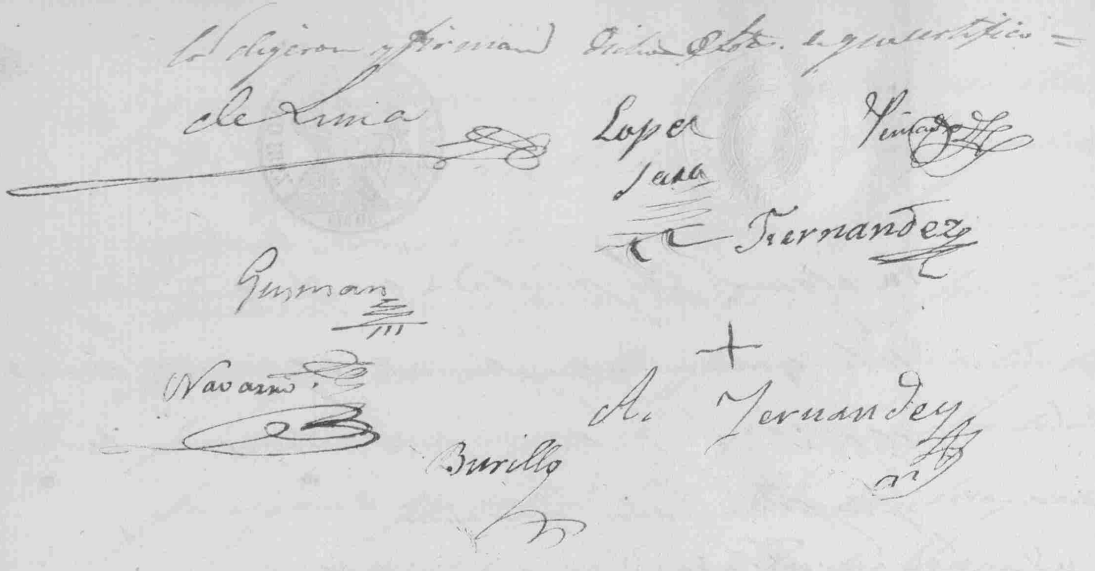 lo dijeron y firman dichos Sres. de que certifico =
de Luna
Lopez
Jara
Fernandez
Gusman
Navarro
+
A. Fernandez
Burillo